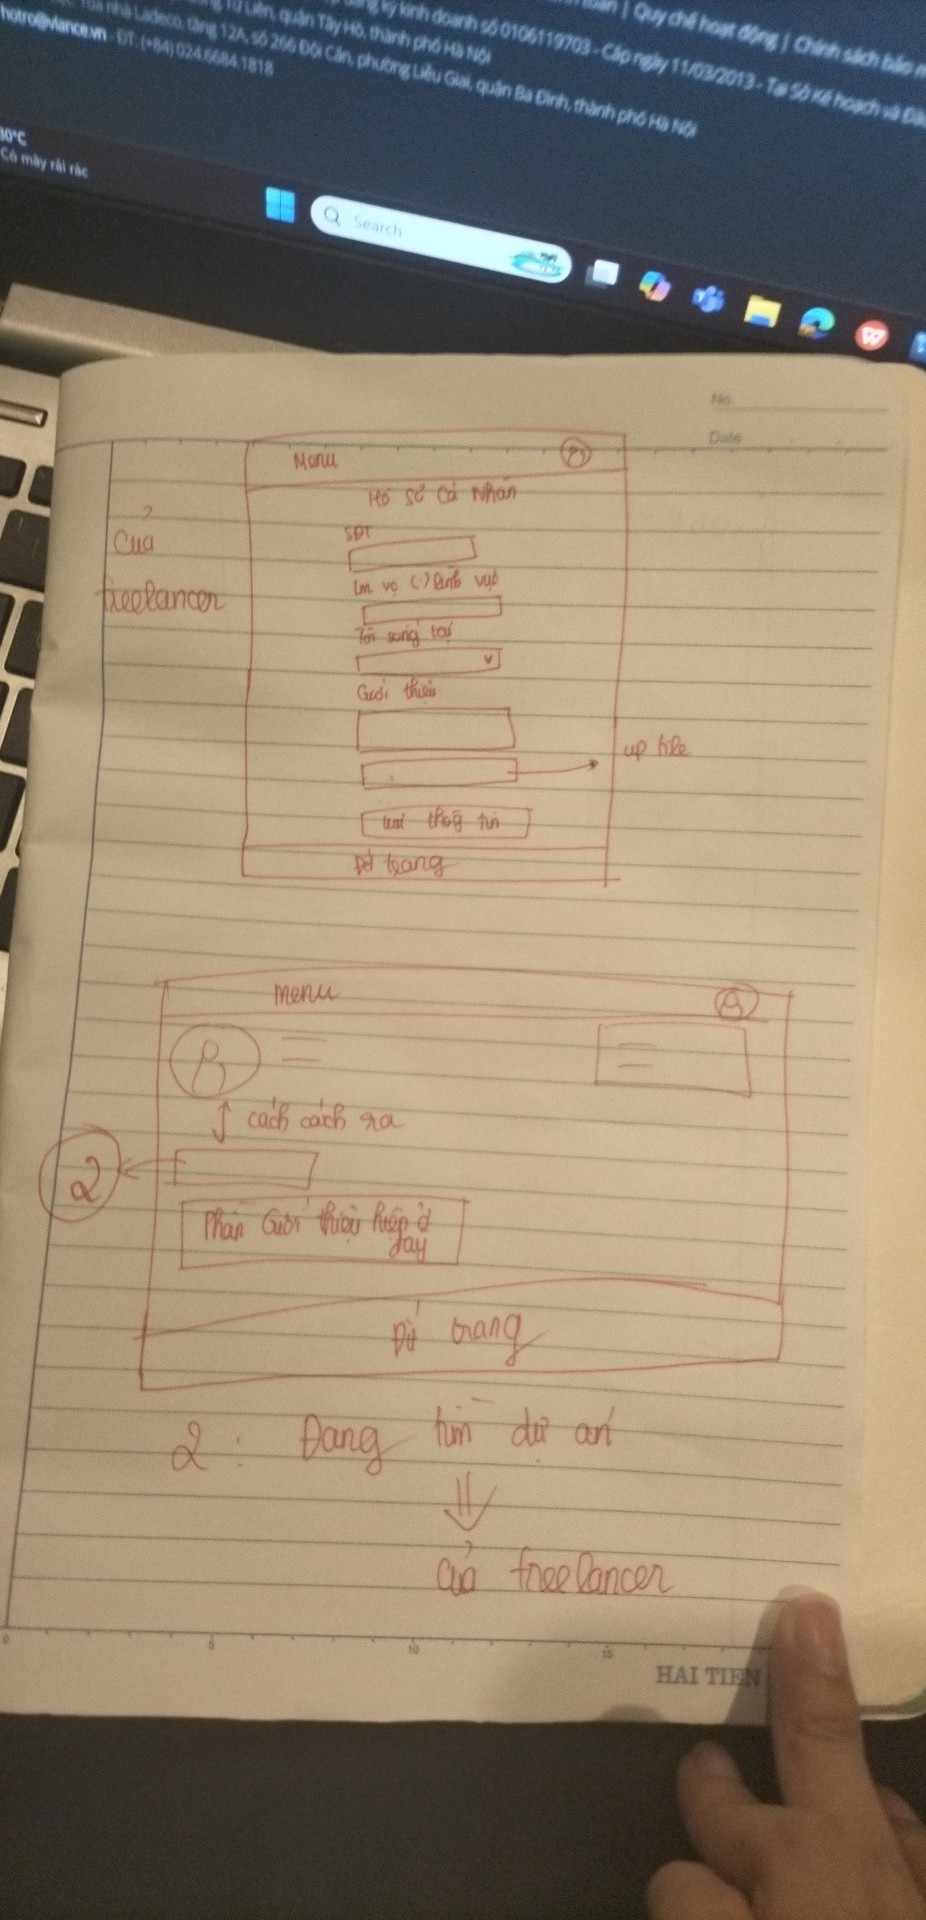 Quy chế hoạt động | Chính sách bảo m
ký kinh doanh số 0106119703 - Cấp ngày 11/03/2013 - Tại Sở Kế hoạch và Đầu
Tứ Liên, quận Tây Hồ, thành phố Hà Nội
nhà Ladeco, tầng 12A, số 266 Đội Cấn, phường Liễu Giai, quận Ba Đình, thành phố Hà Nội
hotro@vlance.vn - ĐT: (+84) 024.6684.1818
30°C
Có mây rải rác
Search
No.
Date
Menu
Hồ sơ cá nhân
Của
freelancer
SĐT
Tôi sống tại
Giới thiệu
up file
Lưu thông tin
trang
menu
cách cách ra
2
Phần Giới thiệu hiện ở
đây
trang
2 : Đang tìm dự án
của freelancer
0 5 10 15
HAI TIEN